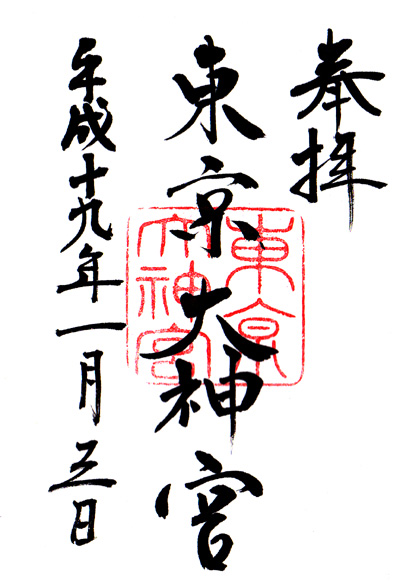 奉拝
東京大神宮
東京
大神宮
平成十九年一月三日